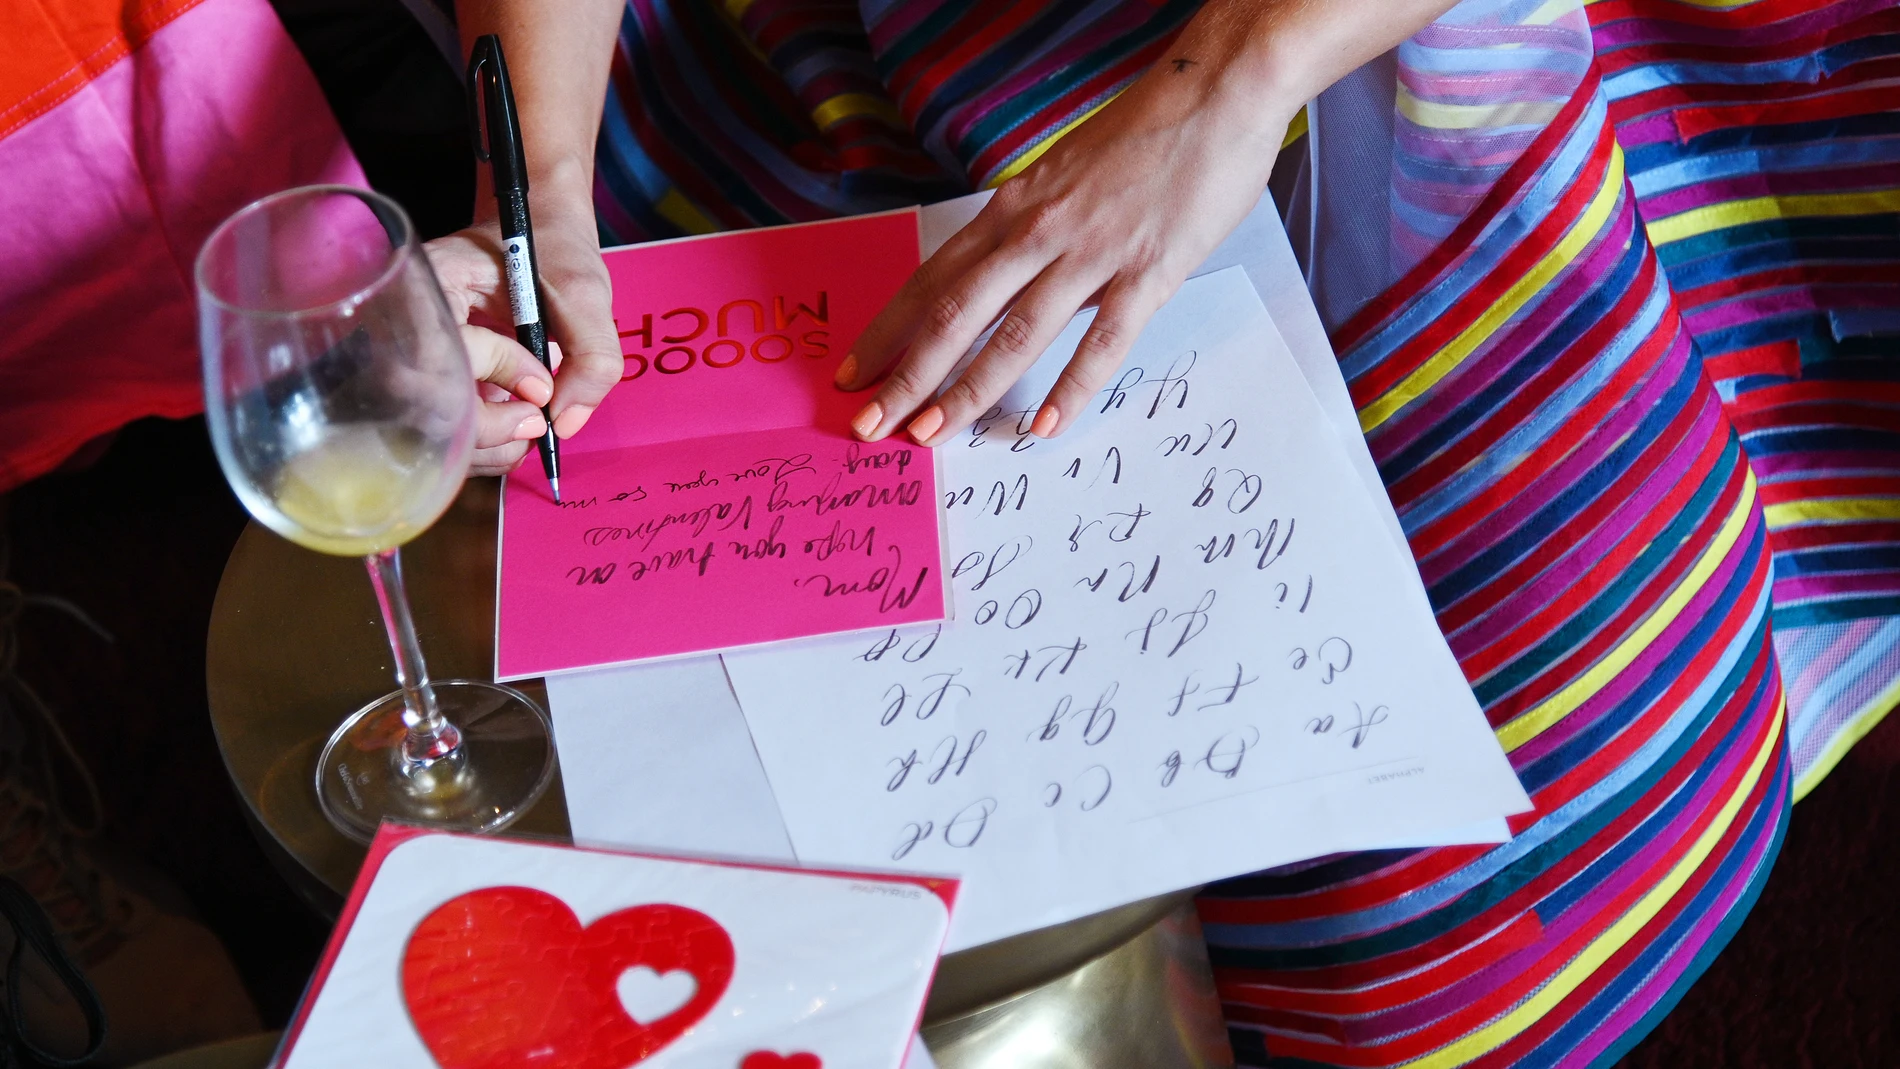 Mom,
I hope you have an
amazing Valentines
day. Love you so mu
SOOOO
MUCH
ALPHABET
Aa Bb Cc Dd
Ee Ff Gg Hh
Ii Jj Kk Ll
Mm Nn Oo Pp
Qq Rr Ss
Uu Vv Ww
Yy Zz